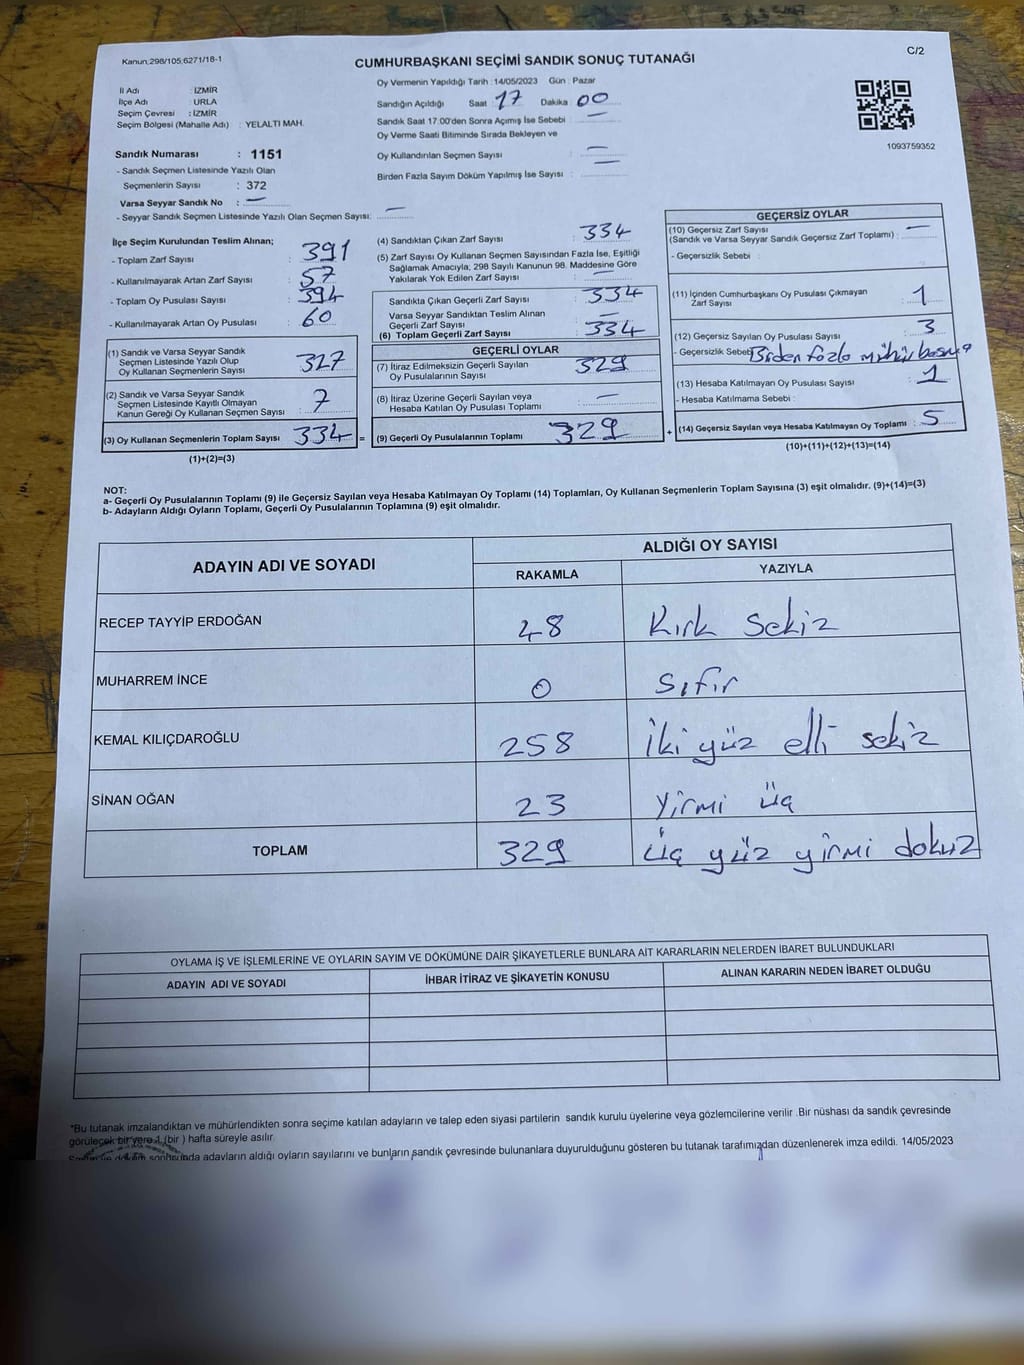 Kanun;298/105;6271/18-1
CUMHURBAŞKANI SEÇİMİ SANDIK SONUÇ TUTANAĞI
C/2
İl Adı : İZMİR
İlçe Adı : URLA
Seçim Çevresi : İZMİR
Seçim Bölgesi (Mahalle Adı) : YELALTI MAH.
Sandık Numarası : 1151
- Sandık Seçmen Listesinde Yazılı Olan
Seçmenlerin Sayısı : 372
Varsa Seyyar Sandık No : —
- Seyyar Sandık Seçmen Listesinde Yazılı Olan Seçmen Sayısı: —
Oy Vermenin Yapıldığı Tarih : 14/05/2023 Gün : Pazar
Sandığın Açıldığı Saat 17 Dakika 00
Sandık Saat 17.00'den Sonra Açımış İse Sebebi : —
Oy Verme Saati Bitiminde Sırada Bekleyen ve
Oy Kullandırılan Seçmen Sayısı : —
Birden Fazla Sayım Döküm Yapılmış İse Sayısı : —
1093759352
İlçe Seçim Kurulundan Teslim Alınan;
- Toplam Zarf Sayısı : 391
- Kullanılmayarak Artan Zarf Sayısı : 57
- Toplam Oy Pusulası Sayısı : 394
- Kullanılmayarak Artan Oy Pusulası : 60
(1) Sandık ve Varsa Seyyar Sandık
Seçmen Listesinde Yazılı Olup
Oy Kullanan Seçmenlerin Sayısı 327
(2) Sandık ve Varsa Seyyar Sandık
Seçmen Listesinde Kayıtlı Olmayan
Kanun Gereği Oy Kullanan Seçmen Sayısı : 7
(3) Oy Kullanan Seçmenlerin Toplam Sayısı 334 =
(1)+(2)=(3)
(4) Sandıktan Çıkan Zarf Sayısı : 334
(5) Zarf Sayısı Oy Kullanan Seçmen Sayısından Fazla İse, Eşitliği
Sağlamak Amacıyla; 298 Sayılı Kanunun 98. Maddesine Göre
Yakılarak Yok Edilen Zarf Sayısı : —
Sandıkta Çıkan Geçerli Zarf Sayısı : 334
Varsa Seyyar Sandıktan Teslim Alınan
Geçerli Zarf Sayısı : —
(6) Toplam Geçerli Zarf Sayısı : 334
GEÇERLİ OYLAR
(7) İtiraz Edilmeksizin Geçerli Sayılan
Oy Pusulalarının Sayısı : 329
(8) İtiraz Üzerine Geçerli Sayılan veya
Hesaba Katılan Oy Pusulası Toplamı : —
(9) Geçerli Oy Pusulalarının Toplamı 329 +
GEÇERSİZ OYLAR
(10) Geçersiz Zarf Sayısı
(Sandık ve Varsa Seyyar Sandık Geçersiz Zarf Toplamı) : —
- Geçersizlik Sebebi :
(11) İçinden Cumhurbaşkanı Oy Pusulası Çıkmayan
Zarf Sayısı : 1
(12) Geçersiz Sayılan Oy Pusulası Sayısı : 3
- Geçersizlik Sebebi Birden fazla mühür basma
(13) Hesaba Katılmayan Oy Pusulası Sayısı : 1
- Hesaba Katılmama Sebebi :
(14) Geçersiz Sayılan veya Hesaba Katılmayan Oy Toplamı : 5
(10)+(11)+(12)+(13)=(14)
NOT:
a- Geçerli Oy Pusulalarının Toplamı (9) ile Geçersiz Sayılan veya Hesaba Katılmayan Oy Toplamı (14) Toplamları, Oy Kullanan Seçmenlerin Toplam Sayısına (3) eşit olmalıdır. (9)+(14)=(3)
b- Adayların Aldığı Oyların Toplamı, Geçerli Oy Pusulalarının Toplamına (9) eşit olmalıdır.
ADAYIN ADI VE SOYADI
ALDIĞI OY SAYISI
RAKAMLA YAZIYLA
RECEP TAYYİP ERDOĞAN 48 Kırk Sekiz
MUHARREM İNCE 0 Sıfır
KEMAL KILIÇDAROĞLU 258 İki yüz elli sekiz
SİNAN OĞAN 23 Yirmi üç
TOPLAM 329 üç yüz yirmi dokuz
OYLAMA İŞ VE İŞLEMLERİNE VE OYLARIN SAYIM VE DÖKÜMÜNE DAİR ŞİKAYETLERLE BUNLARA AİT KARARLARIN NELERDEN İBARET BULUNDUKLARI
ADAYIN ADI VE SOYADI İHBAR İTİRAZ VE ŞİKAYETİN KONUSU ALINAN KARARIN NEDEN İBARET OLDUĞU
*Bu tutanak imzalandıktan ve mühürlendikten sonra seçime katılan adayların ve talep eden siyasi partilerin sandık kurulu üyelerine veya gözlemcilerine verilir .Bir nüshası da sandık çevresinde
görülecek bir yere 1 (bir ) hafta süreyle asılır.
sonucunda adayların aldığı oyların sayılarını ve bunların sandık çevresinde bulunanlara duyurulduğunu gösteren bu tutanak tarafımızdan düzenlenerek imza edildi. 14/05/2023